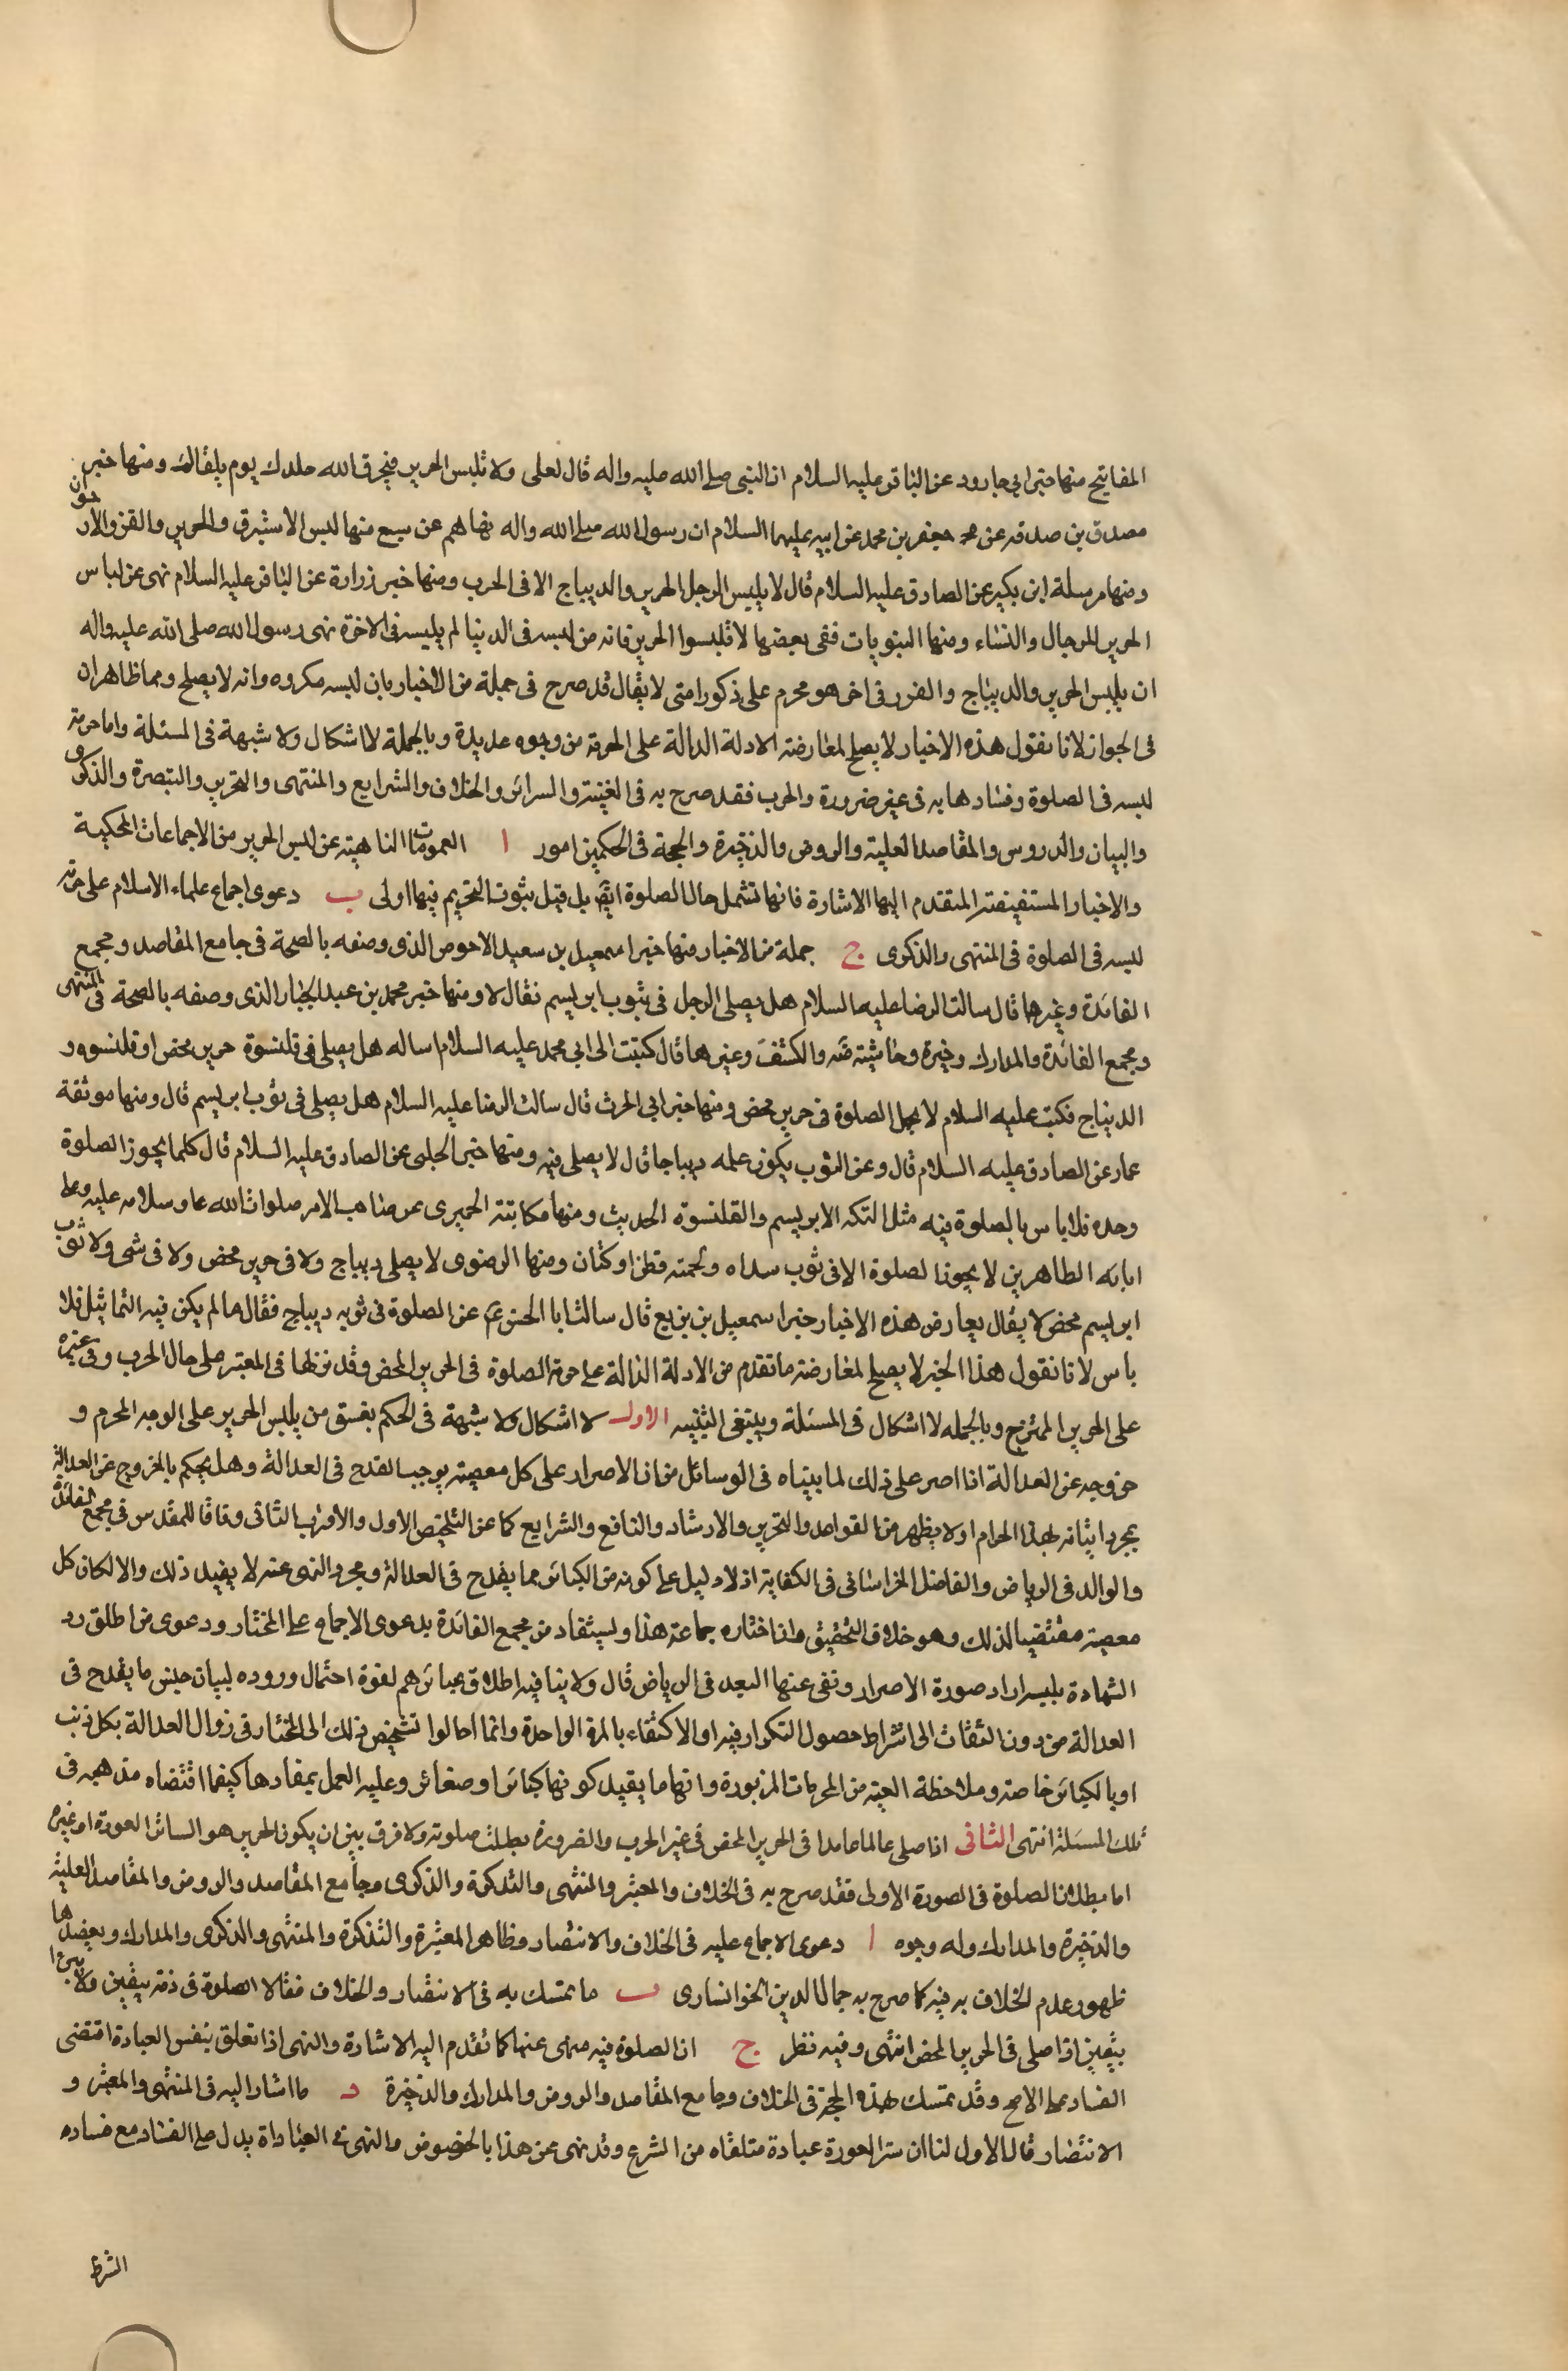 المفاتيح منها خبر ابي جارود عن الباقر عليه السلام ان النبي صلى الله عليه واله قال لعلى ولا تلبس الحرير فيحرق الله جلدك يوم يلقاك ومنها خبر
مصدق بن صدقه عن جعفر بن محمد عن ابيه عليهما السلام ان رسول الله صلى الله واله نهاهم عن سبع منها لبس الاستبرق والحرير والقز والارجوان
ومنها مرسلة ابن بكير عن الصادق عليه السلام قال لا يلبس الرجل الحرير والديباج الا فى الحرب ومنها خبر زرارة عن الباقر عليه السلام نهى عن لباس
الحرير للرجال والنساء ومنها النبويات ففى بعضها لا تلبسوا الحرير فانه من لبسه فى الدنيا لم يلبسه فى الاخرة نهى رسول الله صلى الله عليه واله
ان يلبس الحرير والديباج والفرو فى اخر هو محرم على ذكور امتى لا يقال قد صرح فى جملة من الاخبار بان لبسه مكروه وانه لا يصلح وهما ظاهران
فى الجواز لانا نقول هذه الاخبار لا يصلح لمعارضة الادلة الدالة على الحرمة من وجوه عديدة وبالجملة لا اشكال ولا شبهة فى المسئلة واما حرمة
لبسه فى الصلوة وفسادها به فى غير ضرورة والحرب فقد صرح به فى الغنية والسرائر والخلاف والشرايع والمنتهى والتحرير والتبصرة والذكرى
والبيان والدروس والمقاصد العلية والروض والذخيرة والحجة فى الحكمين امور ا العمومات الناهية عن لبس الحرير من الاجماعات المحكية
والاخبار المستفيضة المتقدم اليها الاشارة فانها تشمل حال الصلوة ايضا بل قيل بثبوت التحريم فيها اولى ب دعوى اجماع علماء الاسلام على حرمة
لبسه فى الصلوة فى المنتهى والذكرى ج جملة من الاخبار منها خبر اسمعيل بن سعيد الاحوص الذى وصفه بالصحة فى جامع المقاصد ومجمع
الفائدة وغيرها قال سالت الرضا عليه السلام هل يصلى الرجل فى ثوب ابريسم فقال لا ومنها خبر محمد بن عبد الجبار الذى وصفه بالصحة فى المنتهى
ومجمع الفائدة والمدارك وخيرة وحاشيته ضه والكشف وغيرها قال كتبت الى ابى محمد عليه السلام اساله هل يصلى فى قلنسوة حرير محض او قلنسوه و
الديباج فكتب عليه السلام لا يحل الصلوة فى حرير محض ومنها خبر ابى الحرث قال سالت الرضا عليه السلام هل يصلى فى ثوب ابريسم قال ومنها موثقة
عمار عن الصادق عليه السلام قال وعن الثوب يكون علمه ديباجا قال لا يصلى فيه ومنها خبر الحلبى عن الصادق عليه السلام قال كلما يجوز الصلوة
وحده فلا باس بالصلوة فيه مثل التكه الابريسم والقلنسوة الحديث ومنها مكاتبة الحميرى عن صاحب الامر صلوات الله وسلامه عليه وعلى
ابائه الطاهرين لا يجوز الصلوة الا فى ثوب سداه ولحمته قطن او كتان ومنها الرضوى لا يصلى ديباج ولا فى حرير محض ولا فى شى ولا ثوب
ابريسم محض لا يقال يعارض هذه الاخبار خبر اسمعيل بن بزيع قال سالت ابا الحسن ع عن الصلوة فى ثوبه ديباج فقال ما لم يكن فيه التماثيل فلا
باس لانا نقول هذا الخبر لا يصلح لمعارضة ما تقدم من الادلة الدالة على حرمة الصلوة فى الحرير المحض وقد نزلها فى المعتبر على حال الحرب وفى غيره
على الحرير الممتزج وبالجمله لا اشكال فى المسئلة وينبغى التنبيه الاول لا اشكال ولا شبهة فى الحكم بفسق من يلبس الحرير على الوجه المحرم و
خروجه عن العدالة اذا اصر على ذلك لما بيناه فى الوسائل من ان الاصرار على كل معصية يوجب القدح فى العدالة وهل يحكم بالخروج عن العدالة
بمجرد اتيانه لهذا الحرام او لا يظهر من القواعد والتحرير والارشاد والنافع والشرايع كما عن التلخيص الاول والاقرب الثانى وفاقا للمقدس فى مجمع الفائدة
والوالد فى الرياض والفاضل الخراسانى فى الكفاية اذ لا دليل على كونه من الكبائر مما يقدح فى العدالة ومجرد النهى عنه لا يفيد ذلك والا لكان كل
معصية مقتضيا لذلك وهو خلاف التحقيق وانا اختاره جماعة هذا ويستفاد من مجمع الفائدة بدعوى الاجماع على المختار ودعوى من اطلق رد
الشهادة بلبسه اراد صورة الاصرار ونفى عنها البعد فى الرياض قال ولا ينافيه اطلاق عبائرهم لقوة احتمال وروده لبيان جنس ما يقدح فى
العدالة من دون التفات الى اشتراط حصول التكرار فيه او الاكتفاء بالمرة الواحدة وانما احالوا تشخيص ذلك الى المختار فى زوال العدالة بكل ذنب
او بالكبائر خاصة وملاحظة الغيبة من المحرمات المزبورة وانها ما يفيد كونها كبائر او صغائر وعليه العمل بمفادها كيفما اقتضاه مذهبه فى
تلك المسئلة انتهى الثانى اذا صلى عالما عامدا فى الحرير المحض فى غير الحرب والضرورة بطلت صلوته ولا فرق بين ان يكون الحرير هو الساتر العورة او غيره
اما بطلان الصلوة فى الصورة الاولى فقد صرح به فى الخلاف والمعتبر والمنتهى والتذكرة والذكرى وجامع المقاصد والروض والمقاصد العلية
والذخيرة والمدارك وله وجوه ا دعوى الاجماع عليه فى الخلاف والانتصار وظاهر المعتبر والتذكرة والمنتهى والذكرى والمدارك ويعضدها
ظهور عدم الخلاف به فيه كما صرح به جمال الدين الخوانسارى ب ما تمسك به فى الانتصار والخلاف فقالا الصلوة فى ذمته بيقين ولا يبرء
بيقين اذا صلى فى الحرير المحض انتهى وفيه نظر ج ان الصلوة فيه منهى عنها كما تقدم اليه الاشارة والنهى اذا تعلق بنفس العبادة اقتضى
الفساد على الاصح وقد تمسك بهذه الحجة فى الخلاف وجامع المقاصد والروض والمدارك والذخيرة د ما اشار اليه فى المنتهى والمعتبر و
الانتصار قال الاول لنا ان ستر العورة عبادة متلقاه من الشرع وقد نهى عن هذا بالخصوص والنهى فى العباداة يدل على الفساد مع فساده
الشرط